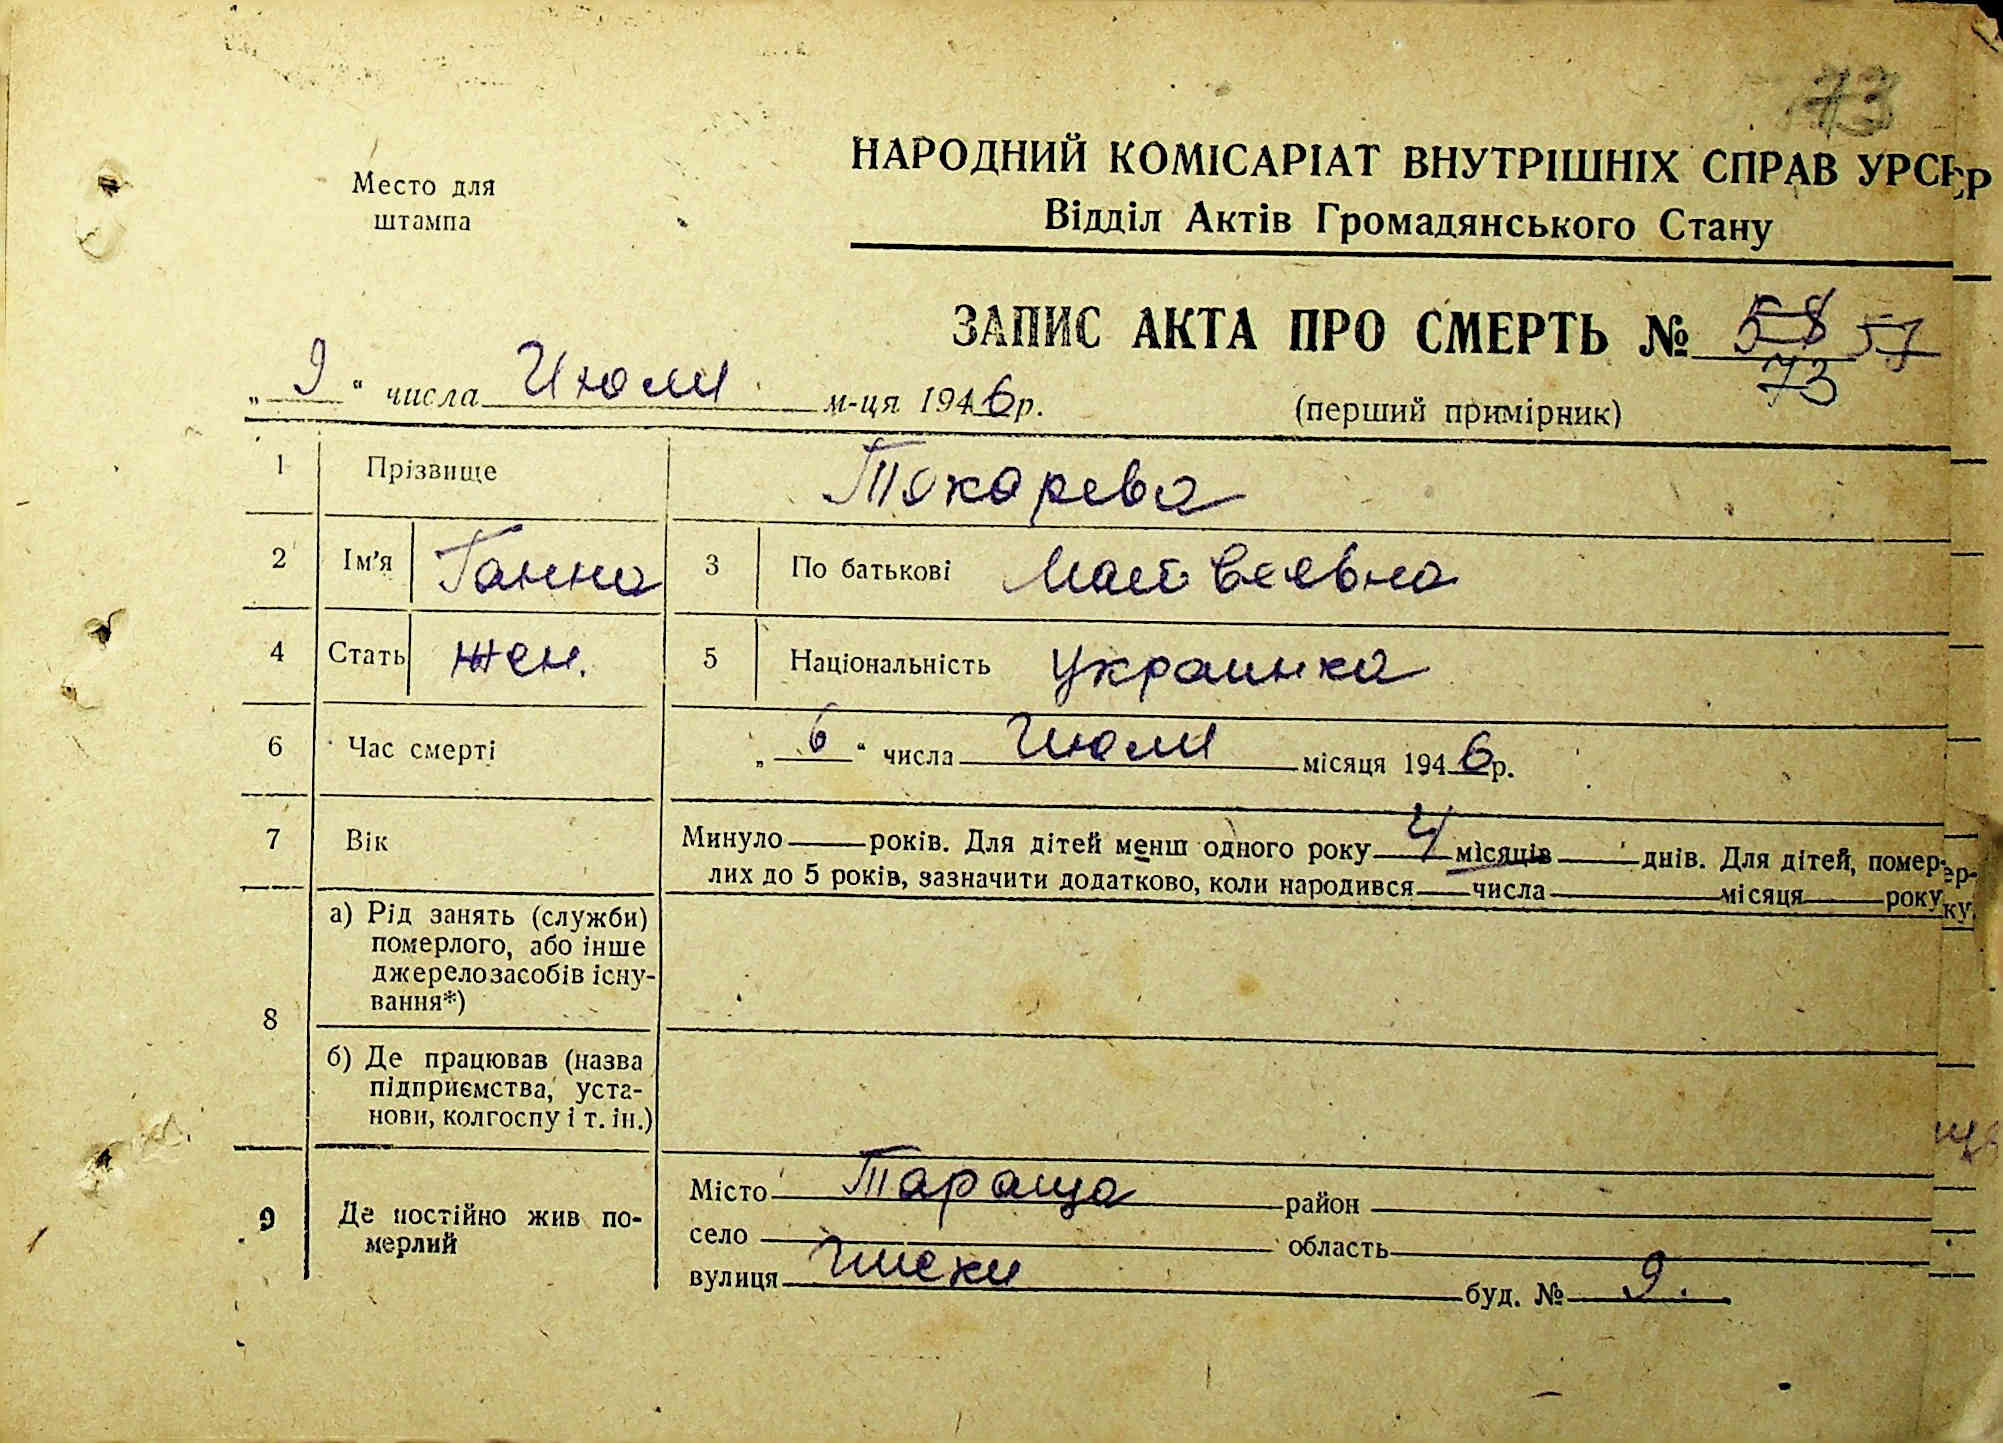 73
Место для
штампа
НАРОДНИЙ КОМІСАРІАТ ВНУТРІШНІХ СПРАВ УРСР
Відділ Актів Громадянського Стану
ЗАПИС АКТА ПРО СМЕРТЬ № 58 57
73
„ 9 “ числа Июли м-ця 1946 р.
(перший примірник)
1 Прізвище Токарева
2 Ім'я Ганна 3 По батькові Матвеевна
4 Стать жен. 5 Національність украинка
6 Час смерті „ 6 “ числа Июли місяця 1946 р.
7 Вік Минуло років. Для дітей менш одного року 4 місяців днів. Для дітей, помер-
лих до 5 років, зазначити додатково, коли народився числа місяця року
8 а) Рід занять (служби)
померлого, або інше
джерело засобів існу-
вання*)
б) Де працював (назва
підприємства, уста-
нови, колгоспу і т. ін.)
9 Де постійно жив по-
мерлий
Місто Тараща район
село область
вулиця буд. № 9.